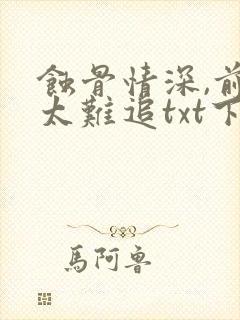 蝕骨情深,前
太難追txt下
馬阿魯